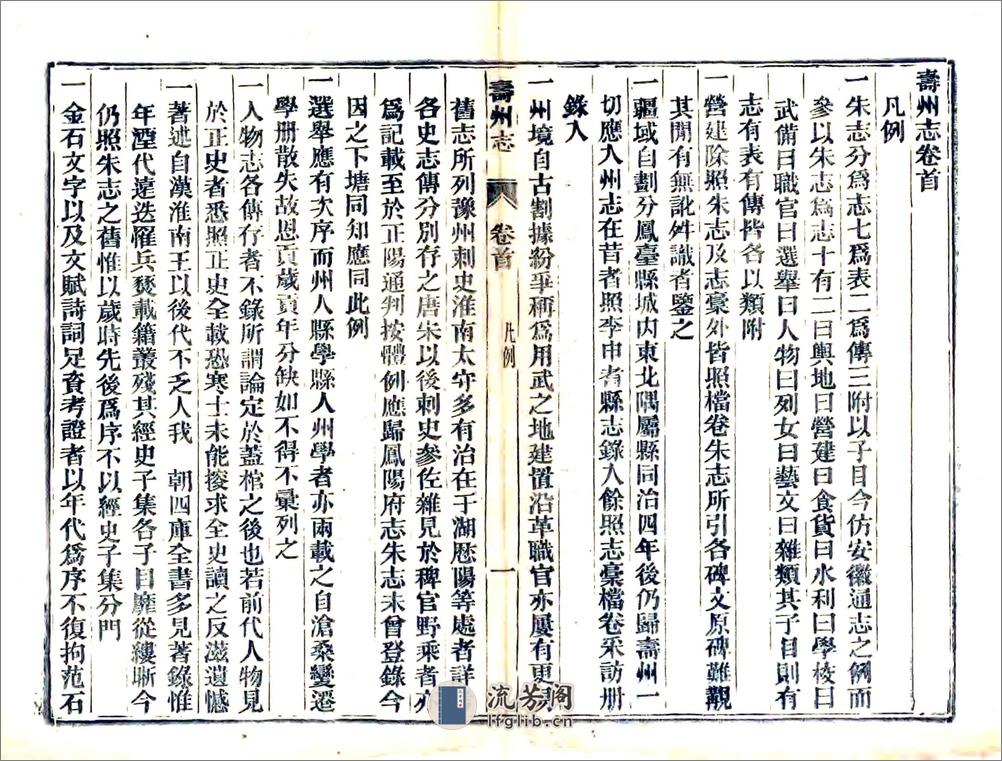 壽州志卷首
凡例
一朱志分爲志七爲表二爲傳三附以子目今仿安徽通志之例而
參以朱志爲志十有二曰輿地曰營建曰食貨曰水利曰學校曰
武備曰職官曰選舉曰人物曰列女曰藝文曰雜類其子目則有
志有表有傳皆各以類附
一營建除照朱志及志藁外皆照檔卷朱志所引各碑文原碑難觀
其閒有無訛舛識者鑒之
一疆域自劃分鳳臺縣城內東北隅屬縣同治四年後仍歸壽州一
切應入州志在昔者照李申耆縣志錄入餘照志藁檔卷采訪册
錄入
一州境自古割據紛爭稱爲用武之地建置沿革職官亦屢有更
壽州志 卷首 凡例 一
舊志所列豫州刺史淮南太守多有治在于湖歷陽等處者詳
各史志傳分別存之唐宋以後刺史參佐雜見於稗官野乘者亦
爲記載至於正陽通判按體例應歸鳳陽府志朱志未曾登錄今
因之下塘同知應同此例
一選舉應有次序而州人縣學縣人州學者亦兩載之自滄桑變遷
學册散失故恩貢歲貢年分缺如不得不彙列之
一人物志各傳存者不錄所謂論定於蓋棺之後也若前代人物見
於正史者悉照正史全載恐寒士未能搜求全史讀之反滋遺憾
一著述自漢淮南王以後代不乏人我 朝四庫全書多見著錄惟
年湮代遠迭罹兵燹載籍叢殘其經史子集各子目靡從縷晰今
仍照朱志之舊惟以歲時先後爲序不以經史子集分門
一金石文字以及文賦詩詞足資考證者以年代爲序不復拘范石
流芳阁
lfglib.cn